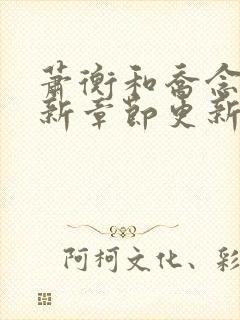 萧衡和乔念
新章节更新
阿柯文化、彩